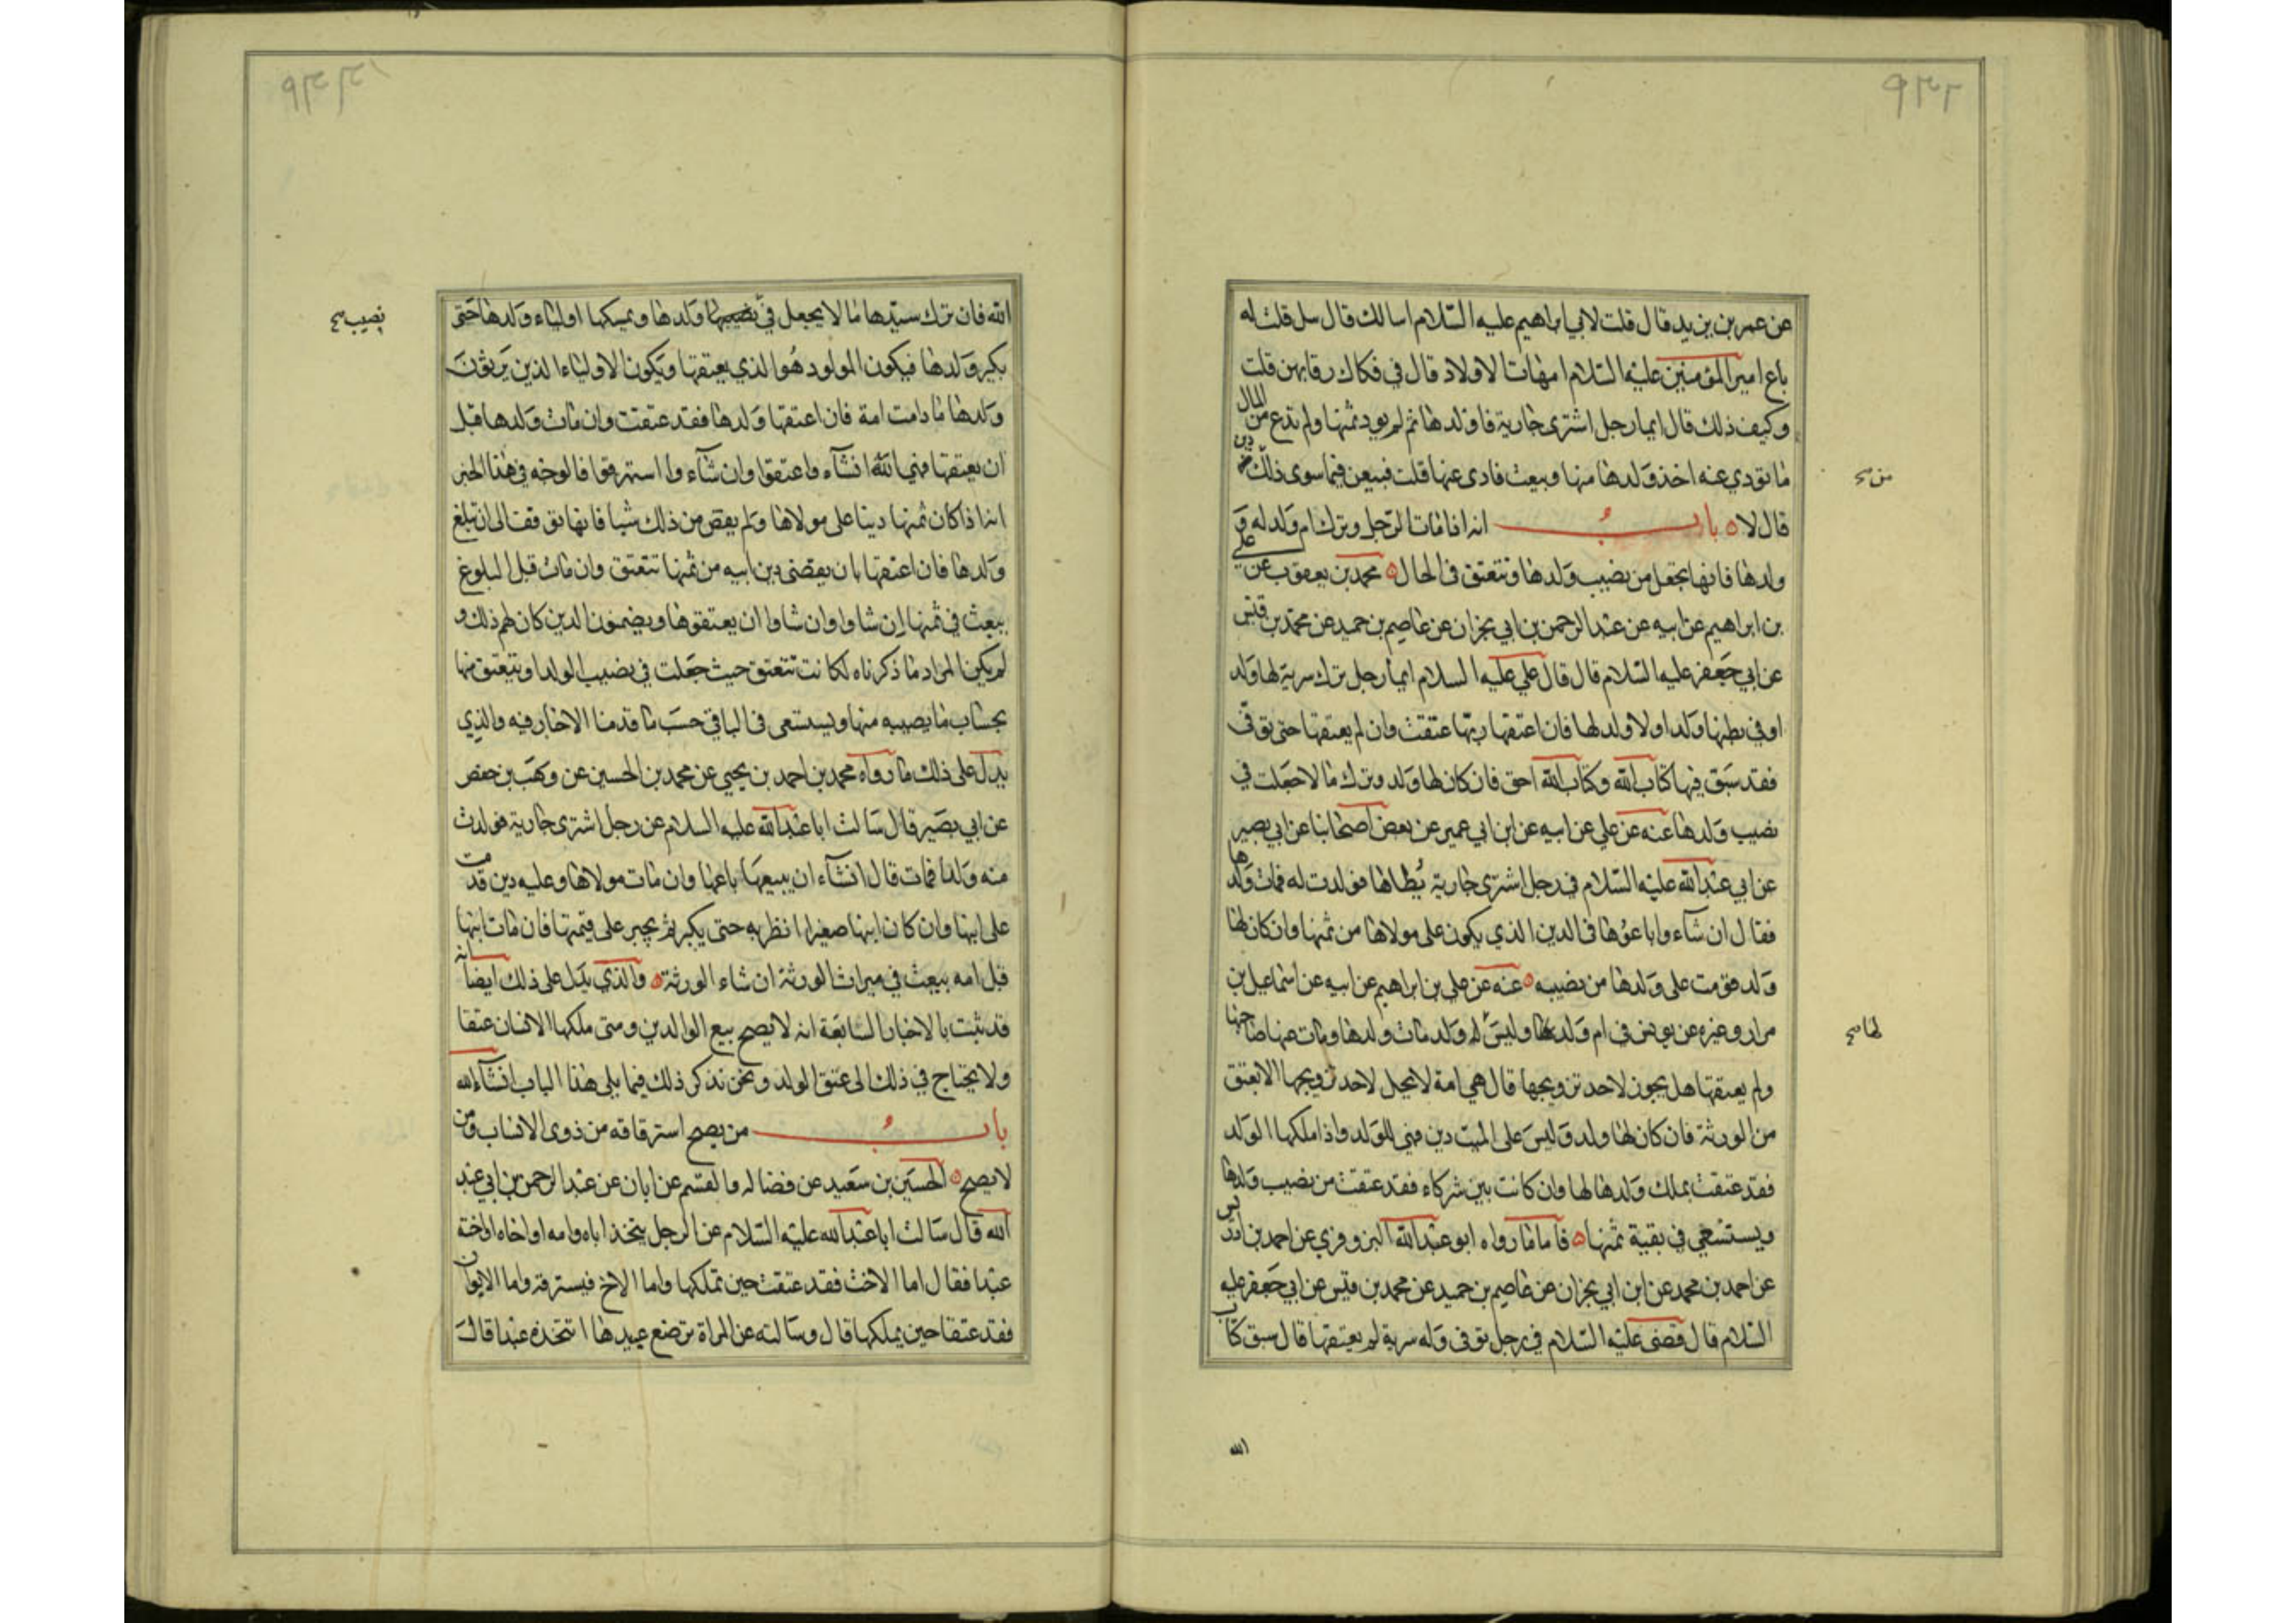 ٩٣٢
عن عمر بن يزيد قال قلت لابي ابراهيم عليه السّلام اسالك قال سل قلت له
باع امير المؤمنين عليه السّلام امهات الاولاد قال في فكاك رقابهن قلت
وكيف ذلك قال ايما رجل اشترى جارية فاولدها ثم لم يود ثمنها ولم تدع من المال
ما تودي عنه اخذ ولدها منها وبيعت فادى عنها قلت فيبعن فيما سوى ذلك من دين
من
قال لا باب انه اذا مات الرّجل وترك ام ولد له و
ولدها فانها تجعل من نصيب ولدها وتنعتق في الحال محمد بن يعقوب عن علي
بن ابراهيم عن ابيه عن عبد الرحمن بن ابي نجران عن عاصم بن حميد عن محمد بن قيس
عن ابي جعفر عليه السّلام قال قال علي عليه السلام ايما رجل ترك سرية لها ولد
او في بطنها ولد او لا ولد لها فان اعتقها ربّها عتقت وان لم يعتقها حتى توفّى
فقد سبق فيها كتاب الله وكتاب الله احق فان كان لها ولد وترك مالا جعلت في
نصيب ولدها عنه عن علي عن ابيه عن ابن ابي عمير عن بعض اصحابنا عن ابي بصير
عن ابي عبد الله عليه السّلام في رجل اشترى جارية يُطاها فولدت له فمات ولدها
فقال ان شاء وا باعوها في الدين الذي يكون على مولاها من ثمنها وان كان لها
ولد قومت على ولدها من نصيبه عنه عن علي بن ابراهيم عن ابيه عن اسماعيل بن
مرار وغيره عن يونس في ام ولد وليس له ولد مات ولدها ومات عنها صاحبها
لها
ولم يعتقها هل يجوز لاحد تزويجها قال هي امة لا يحل لاحد تزويجها الا بعتق
من الورثة فان كان لها ولد وليس على الميت دين فهي للولد واذا ملكها الولد
فقد عتقت بملك ولدها لها وان كانت بين شركاء فقد عتقت من نصيب ولدها
ويستسعي في بقية ثمنها فاما ما رواه ابو عبد الله البزوفري عن احمد بن ادريس
عن احمد بن محمد عن ابن ابي نجران عن عاصم بن حميد عن محمد بن قيس عن ابي جعفر عليه
السّلام قال قضى عليه السّلام في رجل توفى وله سرية لم يعتقها قال سبق كتاب
الله
الله فان ترك سيّدها مالا يجعل في ولدها ويمسكها اولياء ولدها حتى
نصيب
يكبر ولدها فيكون المولود هُوا لذي يعتقها ويكون الاولياء الذين يرثون
ولدها ما دامت امة فان اعتقها ولدها فقد عتقت وان مات ولدها قبل
ان يعتقها فهي انشاء وا عتقوا وان شاء وا استرقوا فالوجه في هذا الخبر
انه اذا كان ثمنها دينا على مولاها ولم يقض من ذلك شيا فانها توقف الى ان تبلغ
ولدها فان اعتقها بان يقضى دين ابيه من ثمنها تنعتق وان مات قبل البلوغ
بيعت في ثمنها اِن شاوا وان شاوا ان يعتقوها ويضمنون الدين كان لهم ذلك و
لم يكن المراد ما ذكرناه لكانت تنعتق حيث جعلت في نصيب الولد او تنعتق منها
بحساب ما يصيبه منها ويستسعى في الباقي حسب ما قدمنا الاخبار فيه والذي
يدل على ذلك ما رواه محمد بن احمد بن يحيي عن محمد بن الحسين عن وهب بن حفص
عن ابي بصير قال سالت ابا عبد الله عليه السلام عن رجل اشترى جارية فولدت
منه ولدا فمات قال انشاء ان يبيعها باعها وان مات مولاها وعليه دين قدمت
على ابنها وان كان ابنها صغيرا انظر به حتى يكبر ثم يجبر على قيمتها فان مات ابنها
قبل امه بيعت في ميراث الورثة ان شاء الورثة والذي يدل على ذلك ايضا انه
قد ثبت بالاخبار السابقة انه لا يصح بيع الوالدين ومتى ملكهما الانسان عتقا
ولا يحتاج في ذلك الى عتق الولد ونحن نذكر ذلك فيما يلى هذا الباب انشاء الله
باب من يصح استرقاقه من ذوى الانساب ومن
لا يصح الحسين بن سعيد عن فضاله والقسم عن ابان عن عبد الرحمن بن ابي عبد
الله قال سالت ابا عبد الله عليه السّلام عن الرجل يتخذ اباه وامه او اخاه او اخته
عبدا فقال اما الاخت فقد عتقت حين تملكها واما الاخ فيسترقه واما الابوان
فقد عتقا حين يملكها قال وسالته عن المراة ترضع عبدها اتتخذه عبدا قال